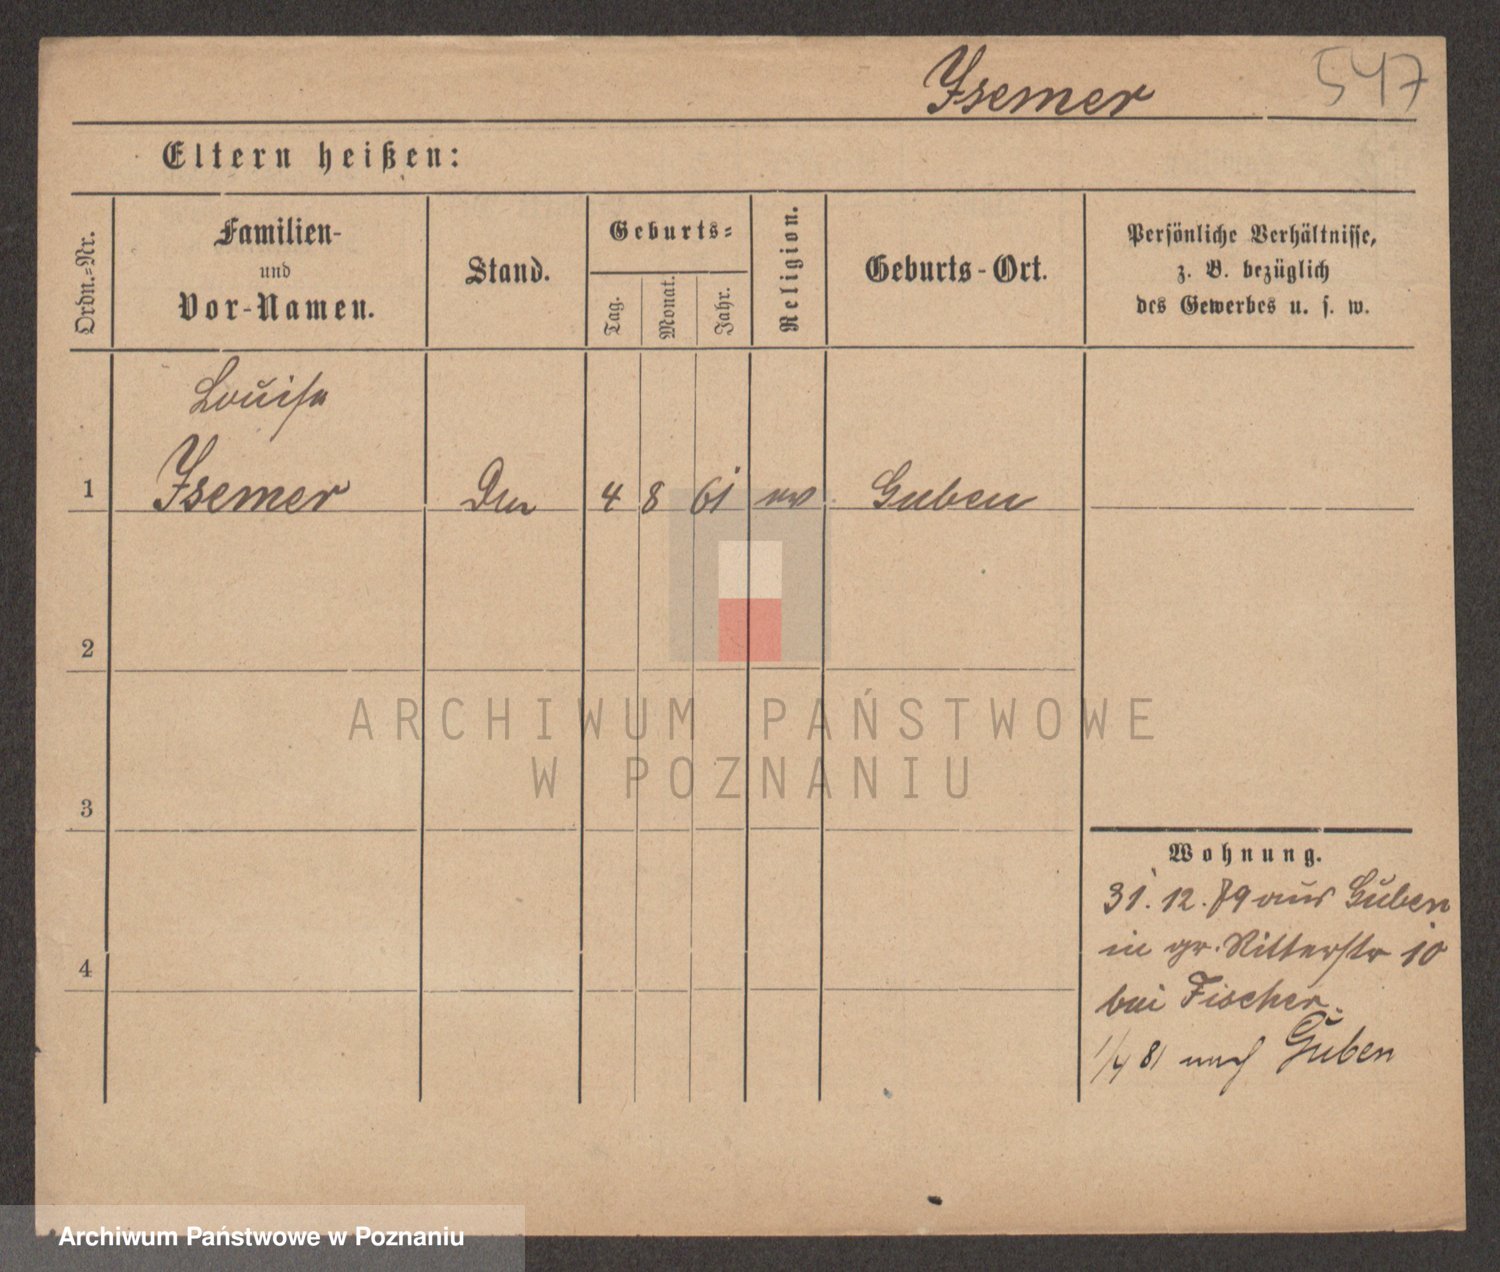 Isemer 547
Eltern heißen:
Ordn.=Nr.
Familien-
und
Vor-Namen.
Stand.
Geburts=
Tag.
Monat.
Jahr.
Religion.
Geburts-Ort.
Persönliche Verhältnisse,
z. B. bezüglich
des Gewerbes u. s. w.
Louise
1 Isemer 4 8 61 ev Guben
2
3
4
Wohnung.
31. 12. 79 aus Guben
in gr. Ritterstr 10
bei Fischer.
1/4 81 nach Guben
ARCHIWUM PAŃSTWOWE
W POZNANIU
Archiwum Państwowe w Poznaniu